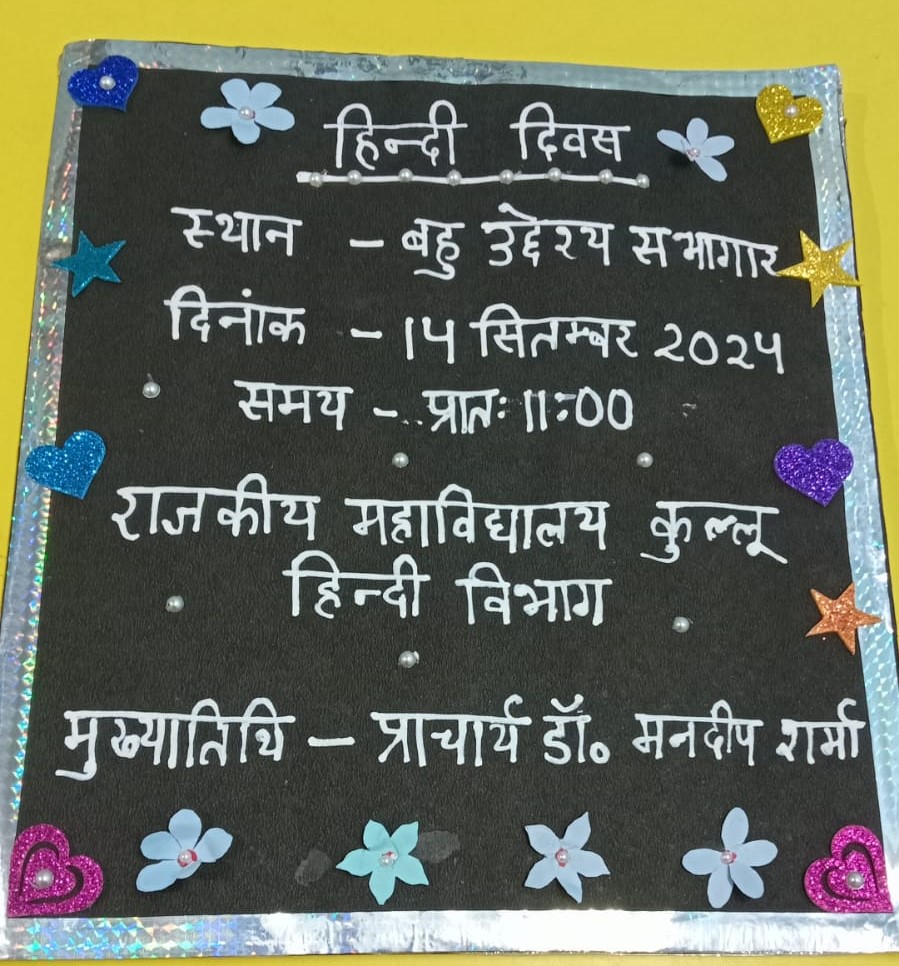 हिन्दी दिवस
स्थान - बहु उद्देश्य सभागार
दिनांक - 14 सितम्बर 2024
समय - प्रातः 11:00
राजकीय महाविद्यालय कुल्लू
हिन्दी विभाग
मुख्यातिथि - प्राचार्य डॉ० मनदीप शर्मा